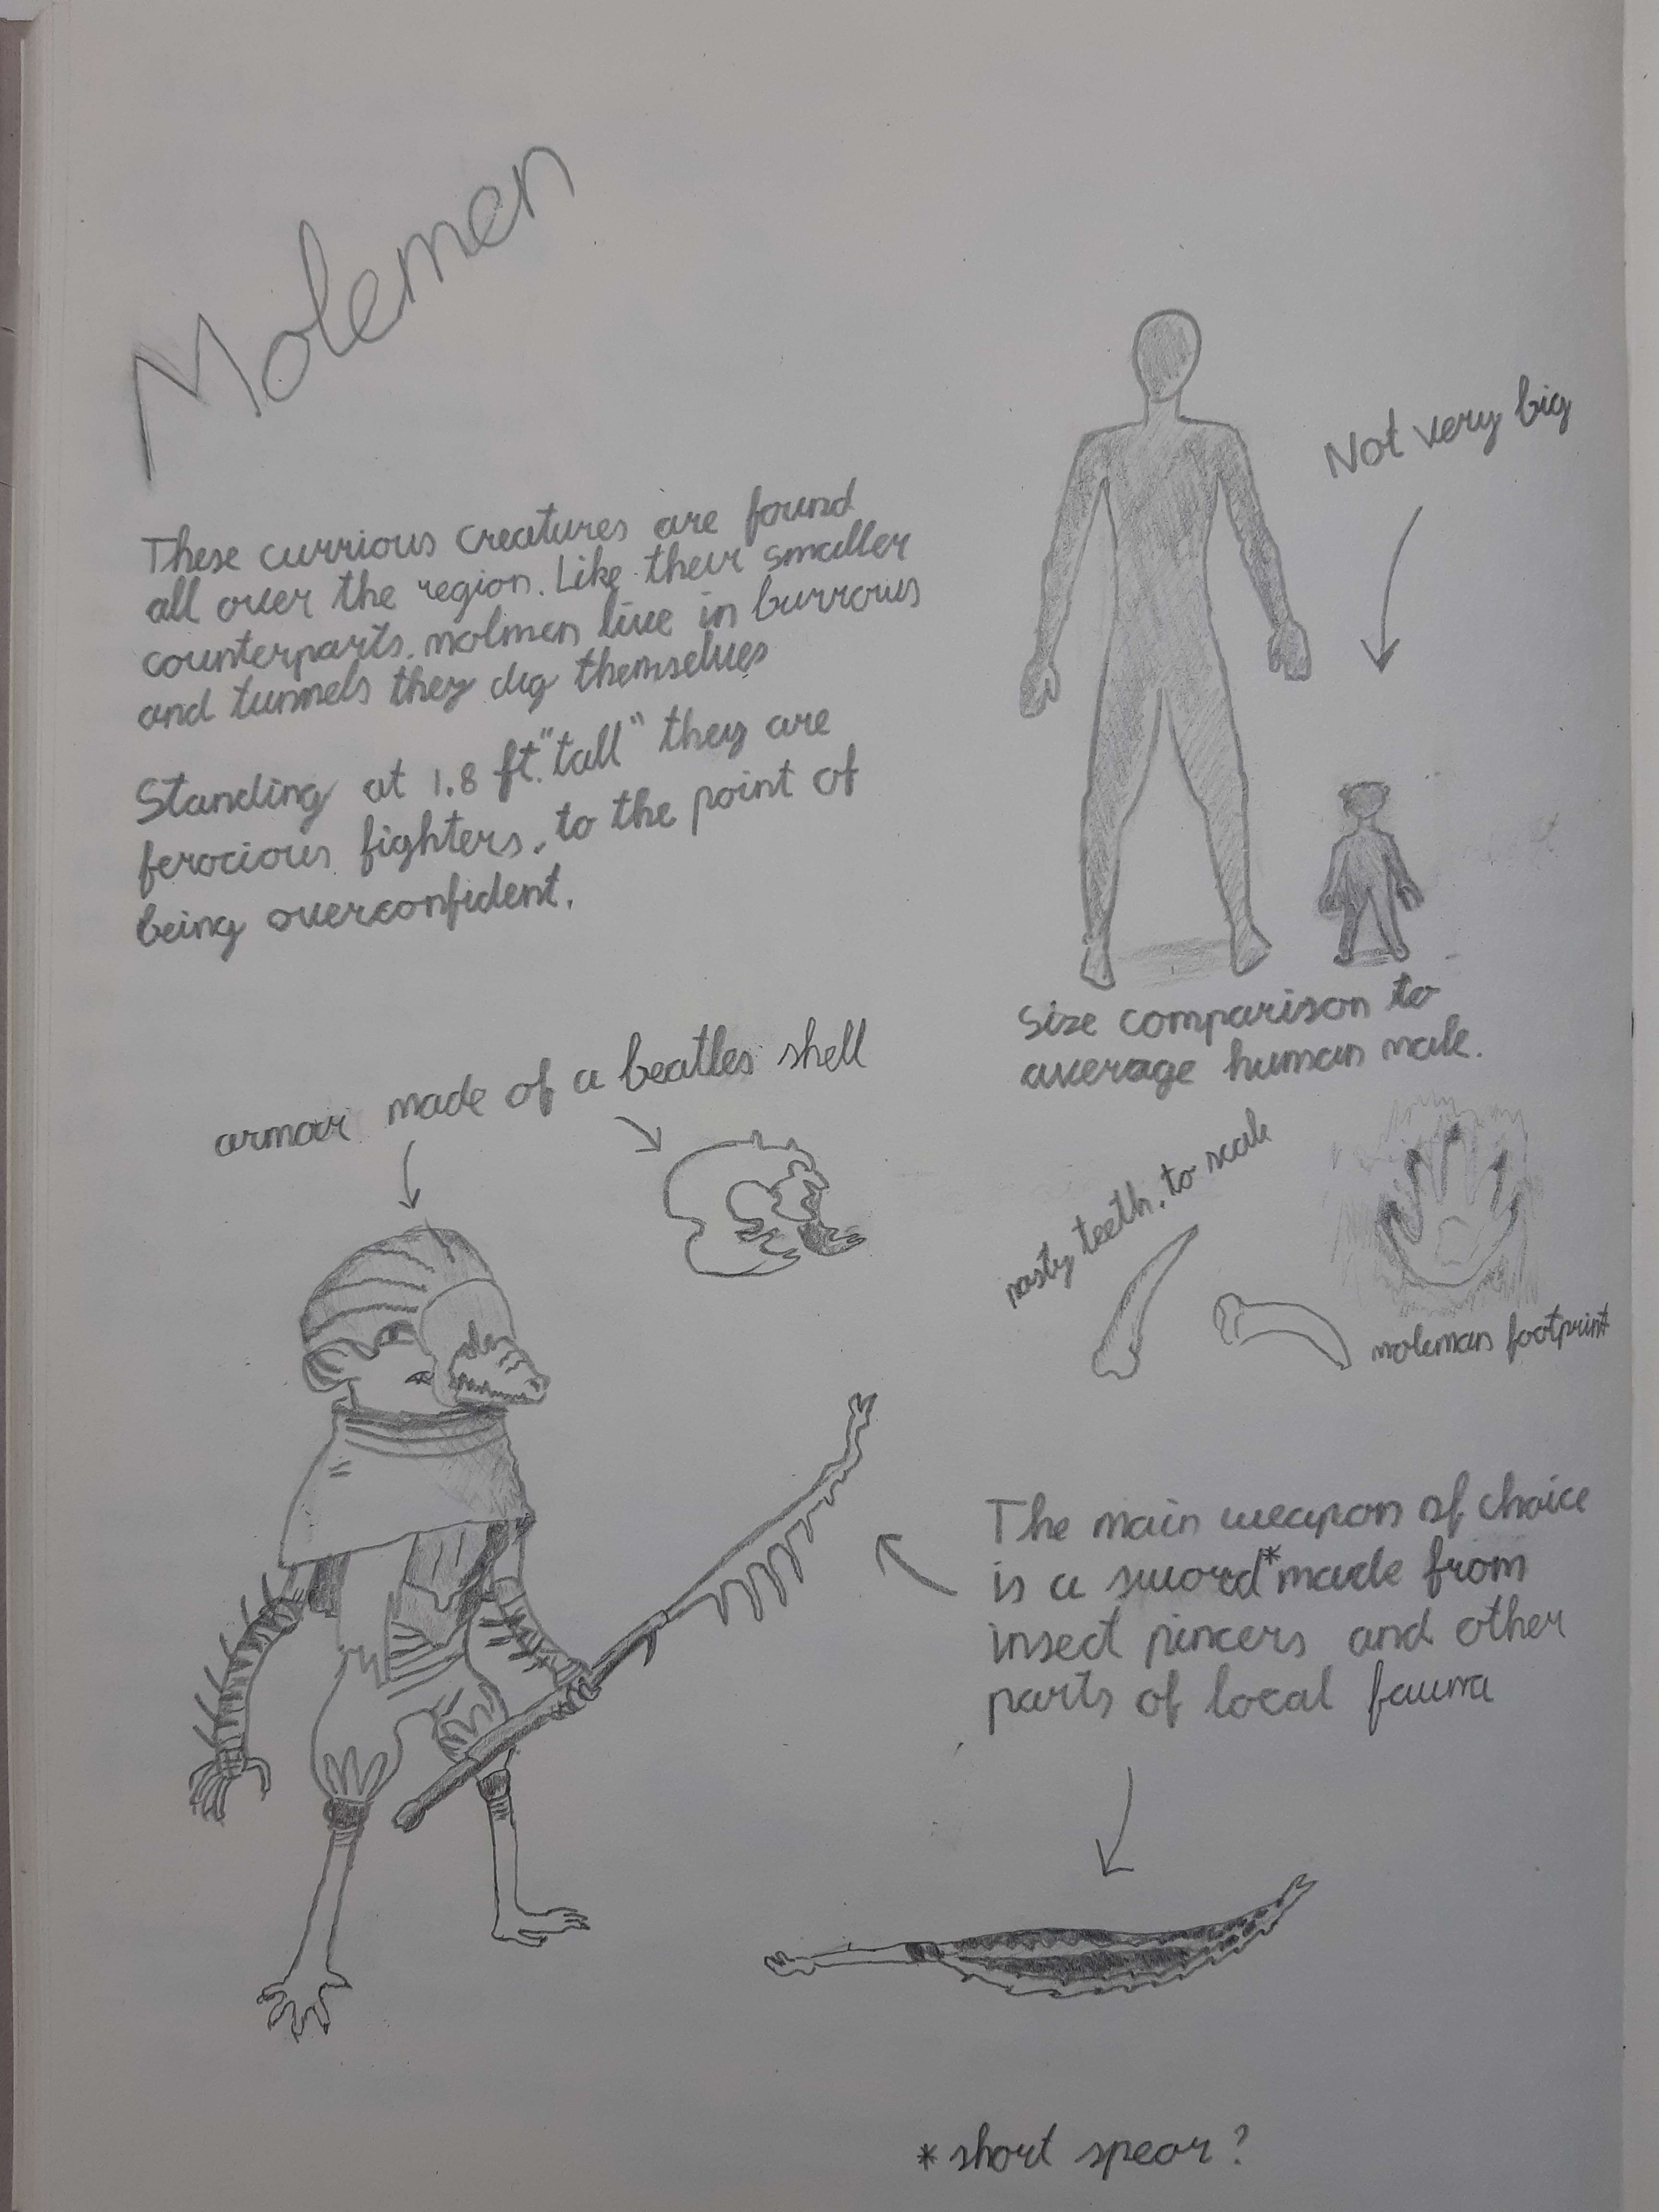 Molemen
These currious creatures are found
all over the region. Like their smaller
counterparts, molmen live in burrows
and tunnels they dig themselves
Standing at 1.8 ft. "tall" they are
ferocious fighters, to the point of
being overconfident.
Not very big
Size comparison to
average human male.
armor made of a beatles shell
nasty teeth, to scale
moleman footprint
The main weapon of choice
is a sword* made from
insect pincers and other
parts of local fauna
* short spear?